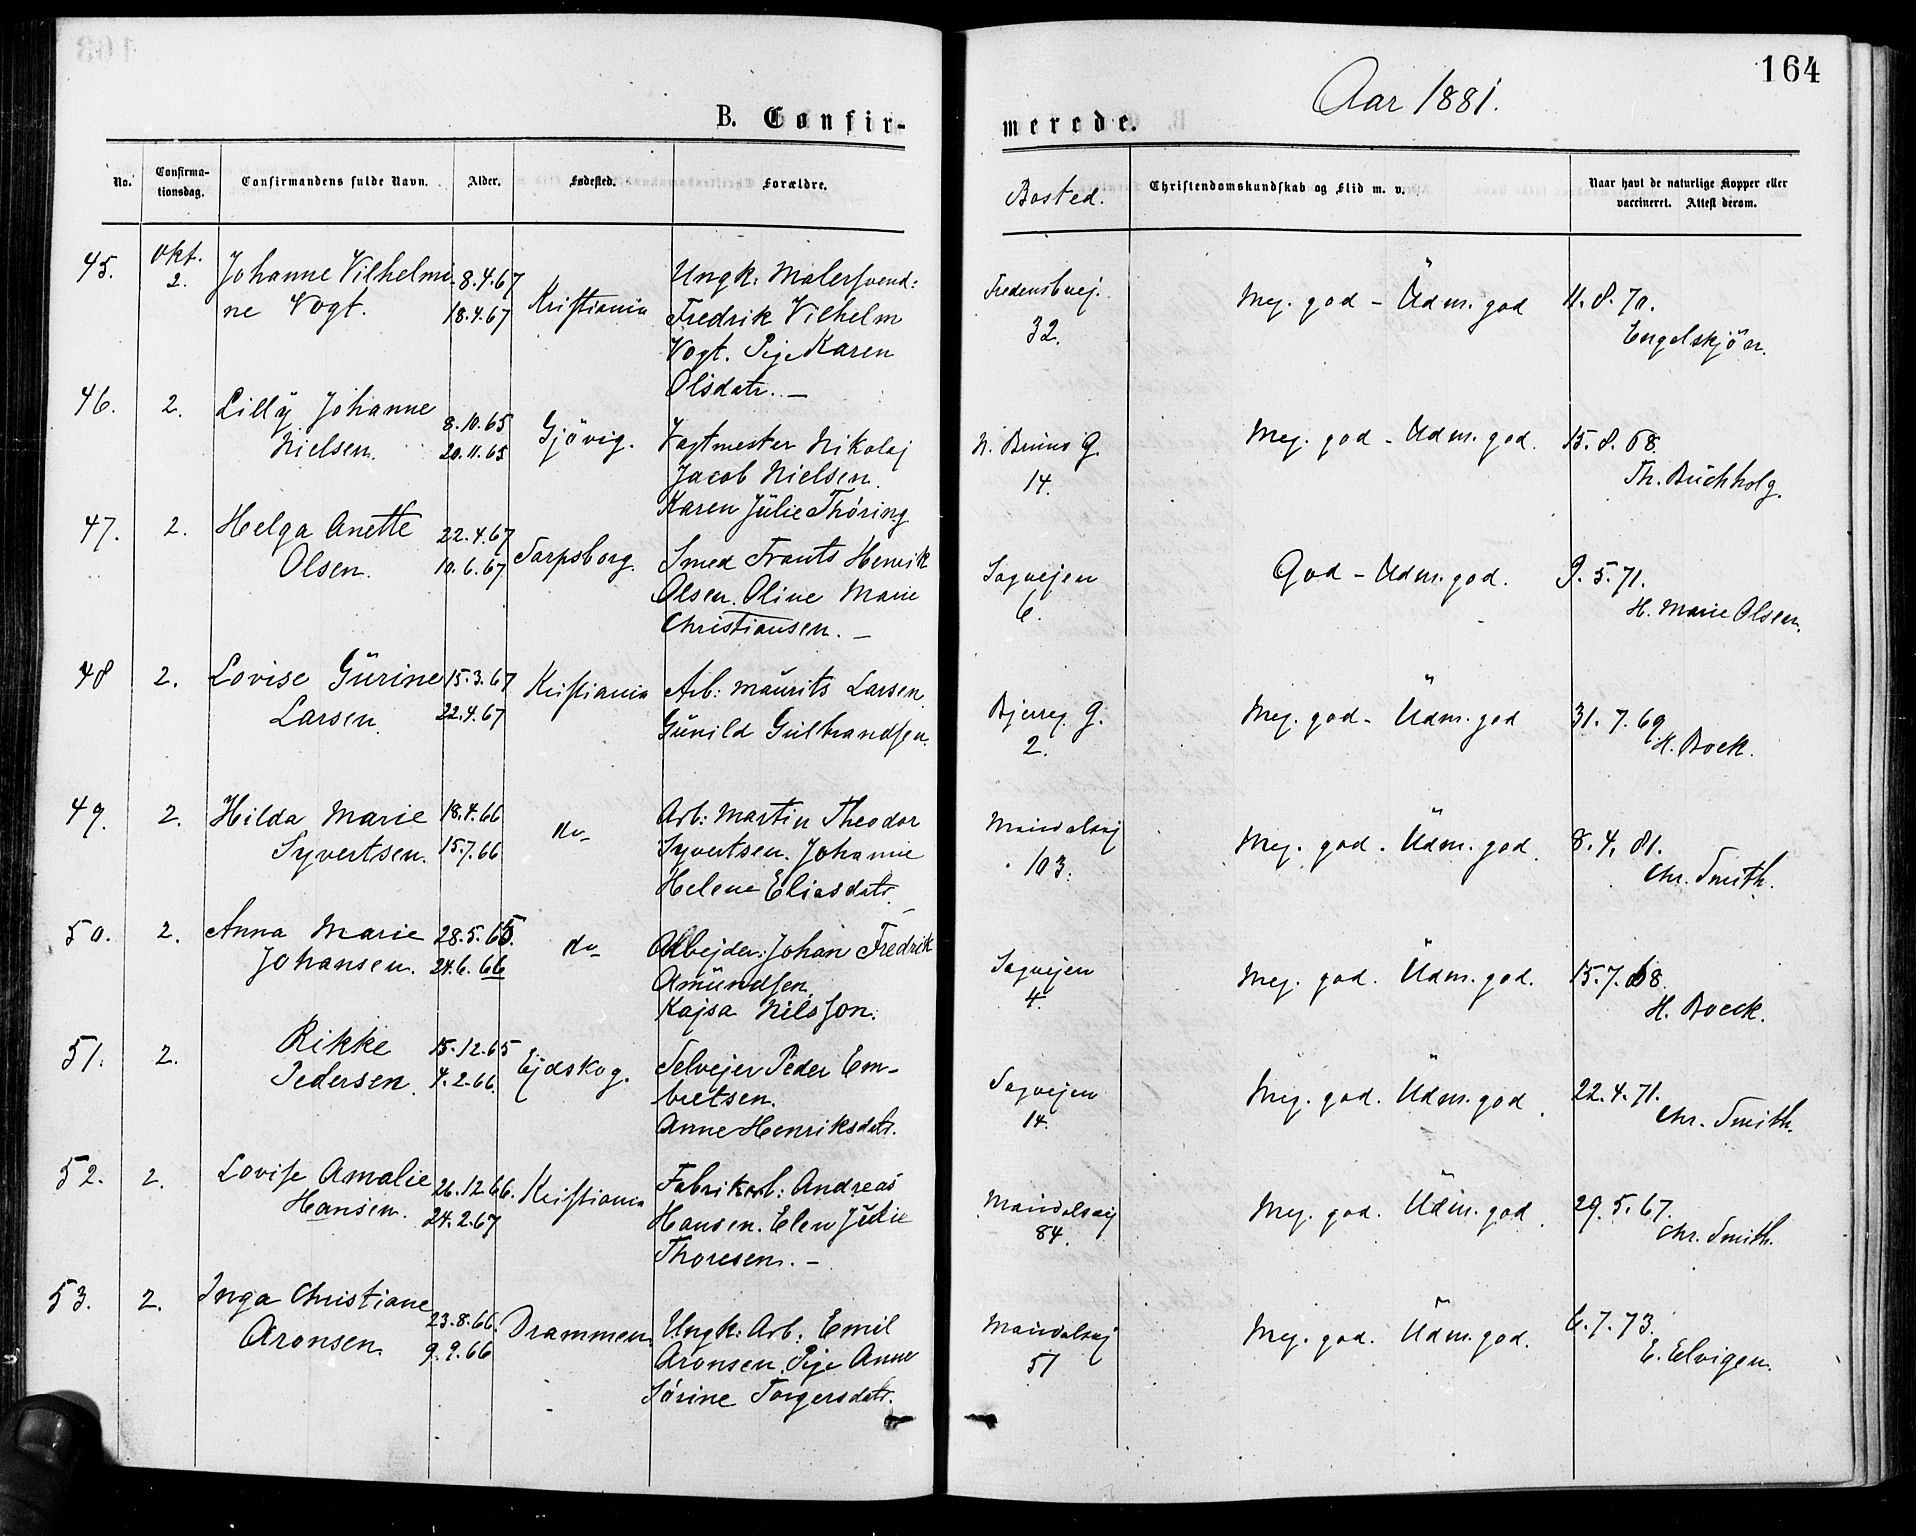 164
Aar 1881.
B. Confir-
merede.
No.
Confirma-
tionsdag.
Confirmandens fulde Navn.
Alder.
Fødested.
Forældre.
Bosted.
Christendomskundskab og Flid m. v.
Naar havt de naturlige Kopper eller
vaccineret. Attest derom.
45.
Okt.
2.
Johanne Vilhelmi-
ne Vogt.
8.4.67
18.4.67
Kristiania
Ungk. Malersvend:
Fredrik Vilhelm
Vogt. Pige Karen
Olsdatr. –
Fredensbvej.
32.
Meg. god – Udm. god
11. 8. 70.
Engelskjön.
46.
2.
Lilly Johanne
Nielsen.
8.10.65
20.11.65
Gjövig.
Vagtmester Nikolaj
Jacob Nielsen.
Karen Julie Thöring
N. Bruns G.
14.
Meg. god – Udm. god.
15. 8. 68.
Th. Buchholz.
47.
2.
Helga Anette
Olsen.
22.4.67
10.6.67
Sarpsborg.
Smed Frants Henrik
Olsen. Oline Marie
Christiansen. –
Sagvejen
6.
God – Udm. god.
9. 5. 71.
H. Marie Olsen.
48
2.
Lovise Gurine
Larsen.
15.3.67
22.4.67
Kristiania
Arb: Maurits Larsen
Gunild Gulbrandsen.
Bjerreg. G.
2.
Meg. god – Udm. god
31. 7. 69
H. Boek.
49.
2.
Hilda Marie
Syvertsen.
18.4.66
15.7.66
do
Arb: Martin Theodor
Syvertsen. Johanne
Helene Eliasdatr.
Maridalsvej
103.
Meg. god. Udm. god.
8. 4. 81.
Chr. Smith.
50.
2.
Anna Marie
Johansen.
28.5.65.
24.6.66
do
Arbejder: Johan Fredrik
Amundsen.
Kajsa Nilsson.
Sagvejen
4.
Meg. god. Udm. god.
15. 7. 68.
H. Boeck.
51.
2.
Rikke
Pedersen.
15.12.65
4.2.66.
Ejdskog.
Selvejer Peder Em-
bretsen.
Anne Henriksdatr.
Sagvejen
14.
Meg. god. Udm. god.
22. 4. 71.
Chr. Smith.
52.
2.
Lovise Amalie
Hansen.
26.12.66.
24.2.67
Kristiania
Fabrikarb: Andreas
Hansen. Elen Julie
Thoresen. –
Maridalsvej
84.
Meg. god. Udm. god.
29. 5. 67.
Chr. Smith.
53.
2.
Inga Christiane
Aronsen.
23.8.66.
9.9.66
Drammen.
Ungk. Arb. Emil
Aronsen. Pige Anne
Sörine Torgersdatr.
Maridalsvej
51
Meg. god. Udm. god.
6. 7. 73.
E. Elvigen.